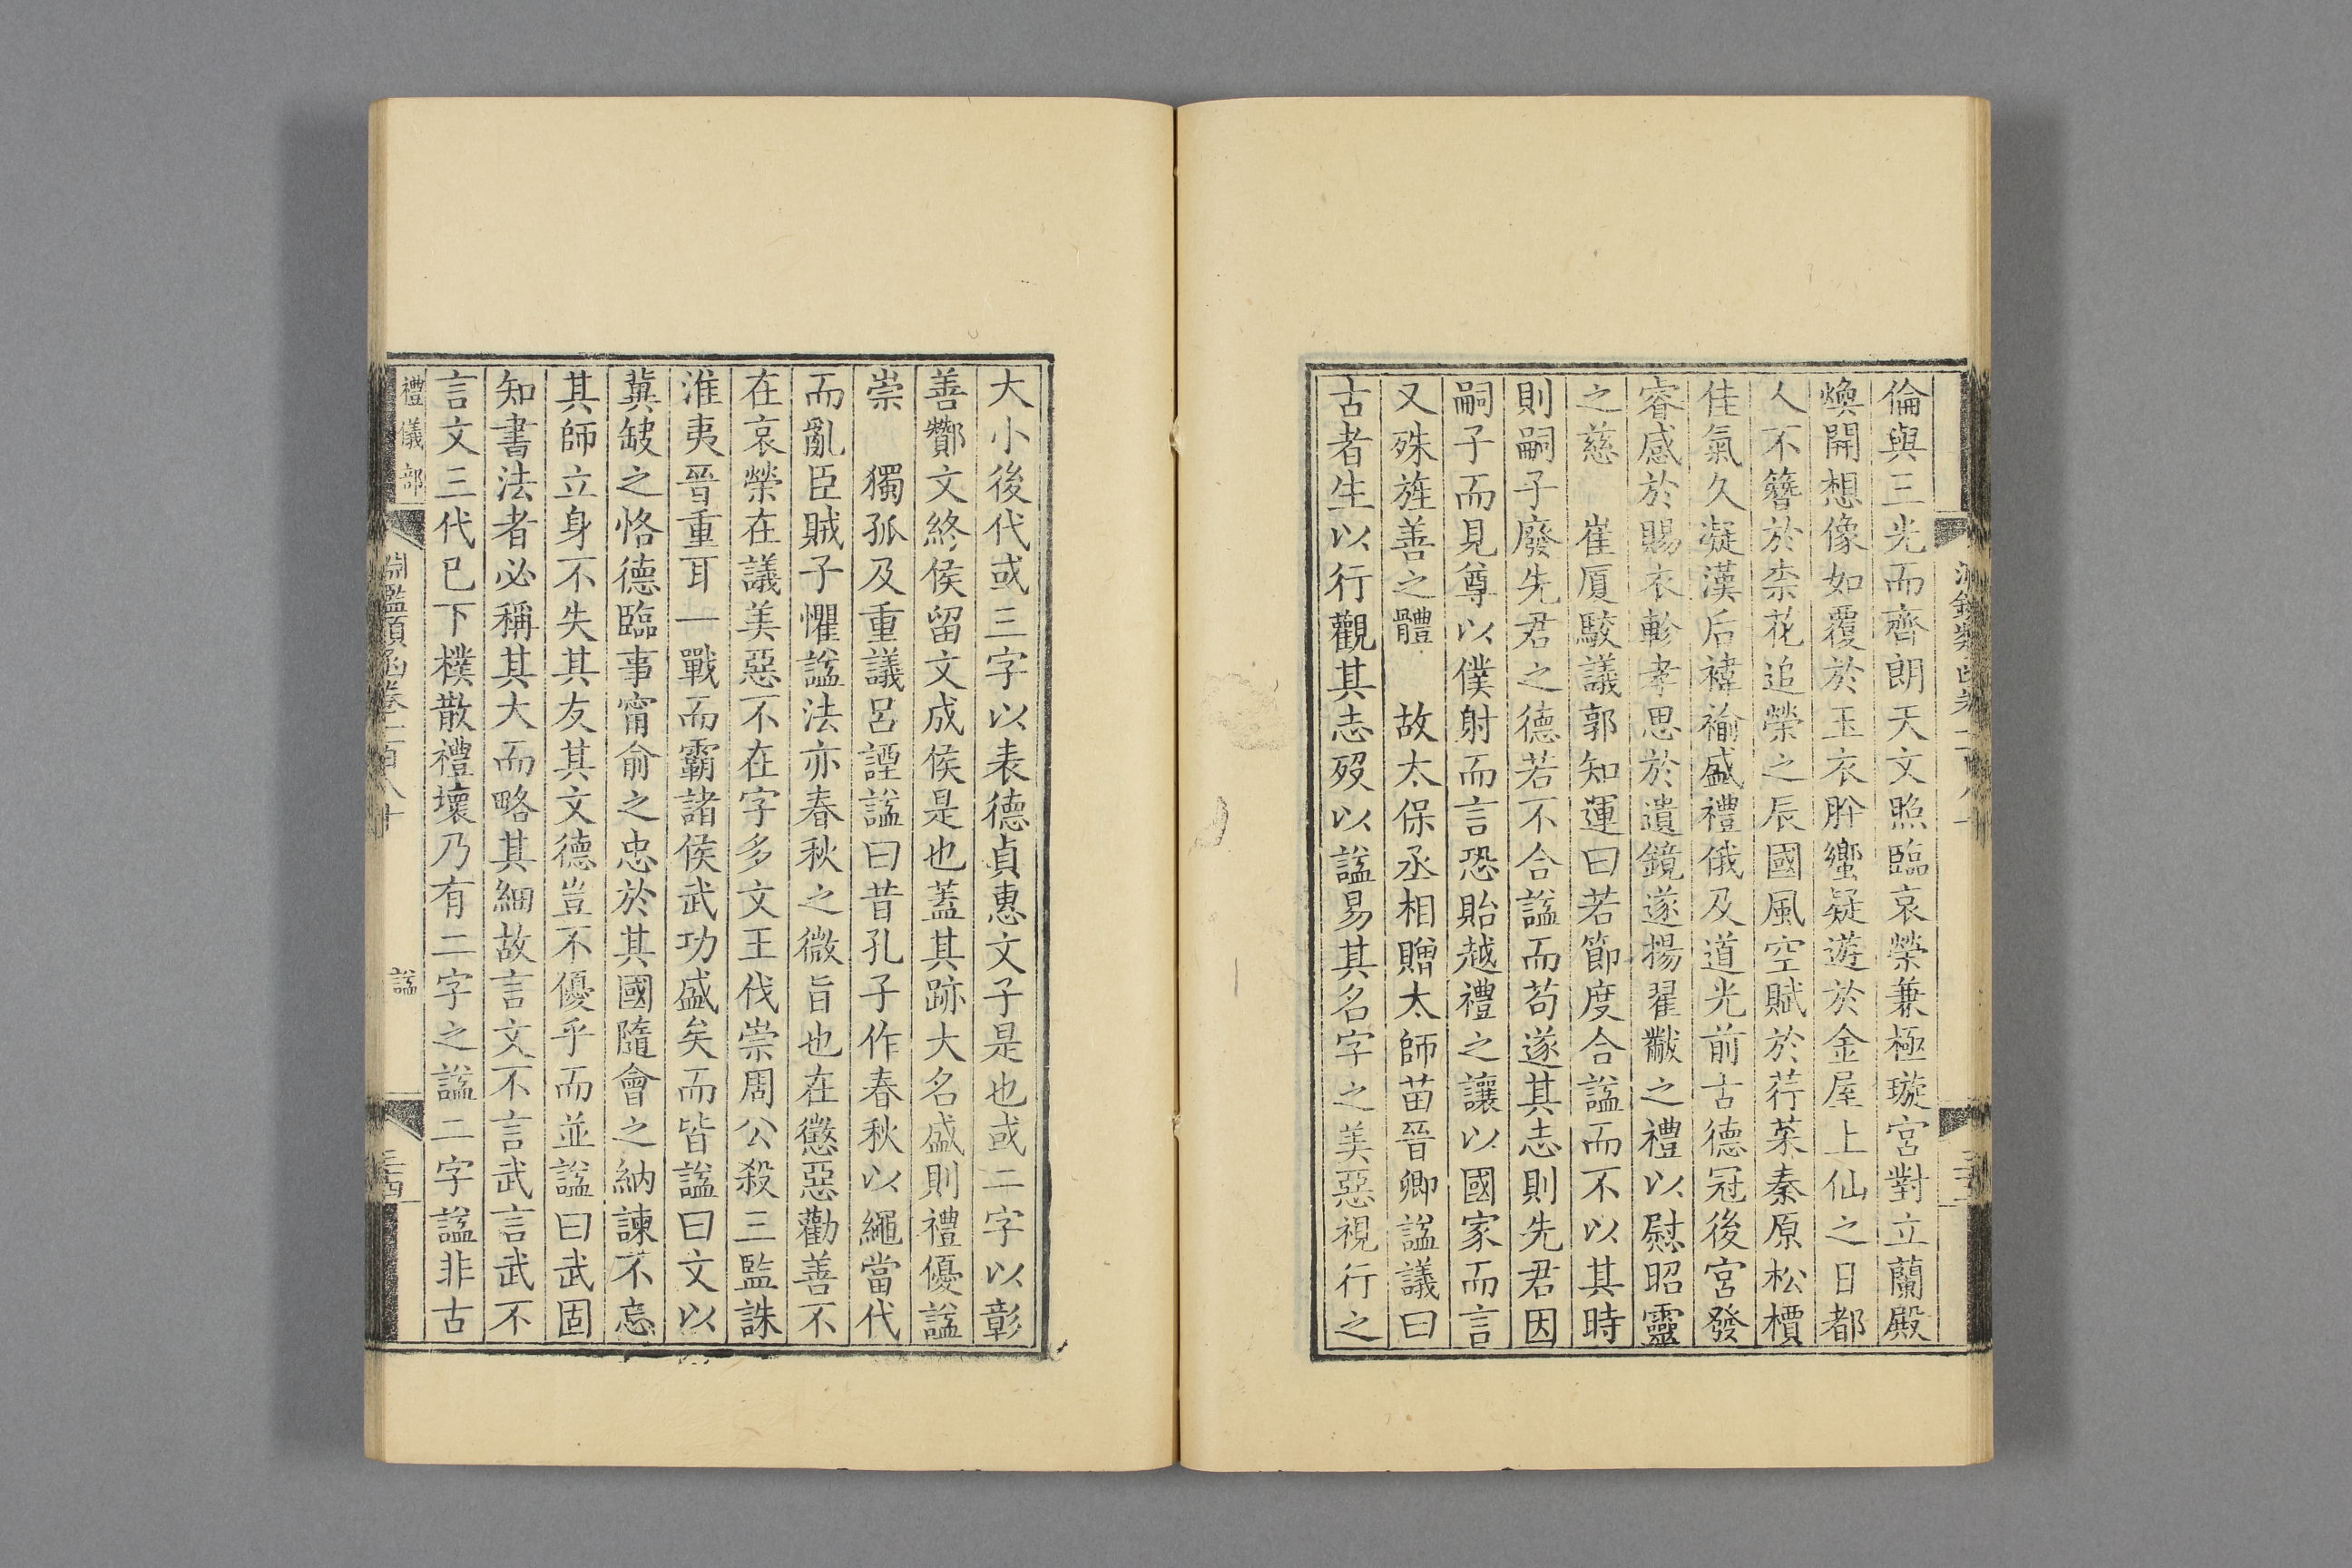 倫與三光而齊朗天文照臨哀榮兼極璇宮對立蘭殿
煥開想像如覆於玉衣肸蠁疑遊於金屋上仙之日都
人不簪於柰花追榮之辰國風空賦於荇菜秦原松檟
佳氣久凝漢后褘褕盛禮俄及道光前古德冠後宮發
睿感於賜衣軫孝思於遺鏡遂揚翟黻之禮以慰昭靈
之慈　崔厦駮議郭知運曰若節度合諡而不以其時
則嗣子廢先君之德若不合諡而苟遂其志則先君因
嗣子而見尊以僕射而言恐貽越禮之讓以國家而言
又殊旌善之體　故太保丞相贈太師苗晉卿諡議曰
古者生以行觀其志歿以諡易其名字之美惡視行之
大小後代或三字以表德貞惠文子是也或二字以彰
善酇文終侯留文成侯是也蓋其跡大名盛則禮優諡
崇　獨孤及重議呂諲諡曰昔孔子作春秋以繩當代
而亂臣賊子懼諡法亦春秋之微旨也在懲惡勸善不
在哀榮在議美惡不在字多文王伐崇周公殺三監誅
淮夷晉重耳一戰而霸諸侯武功盛矣而皆諡曰文以
冀缺之恪德臨事甯俞之忠於其國隨會之納諫不忘
其師立身不失其友其文德豈不優乎而並諡曰武固
知書法者必稱其大而略其細故言文不言武言武不
言文三代已下樸散禮壞乃有二字之諡二字諡非古
禮儀部
淵鑑類函卷一百八十
諡
三四